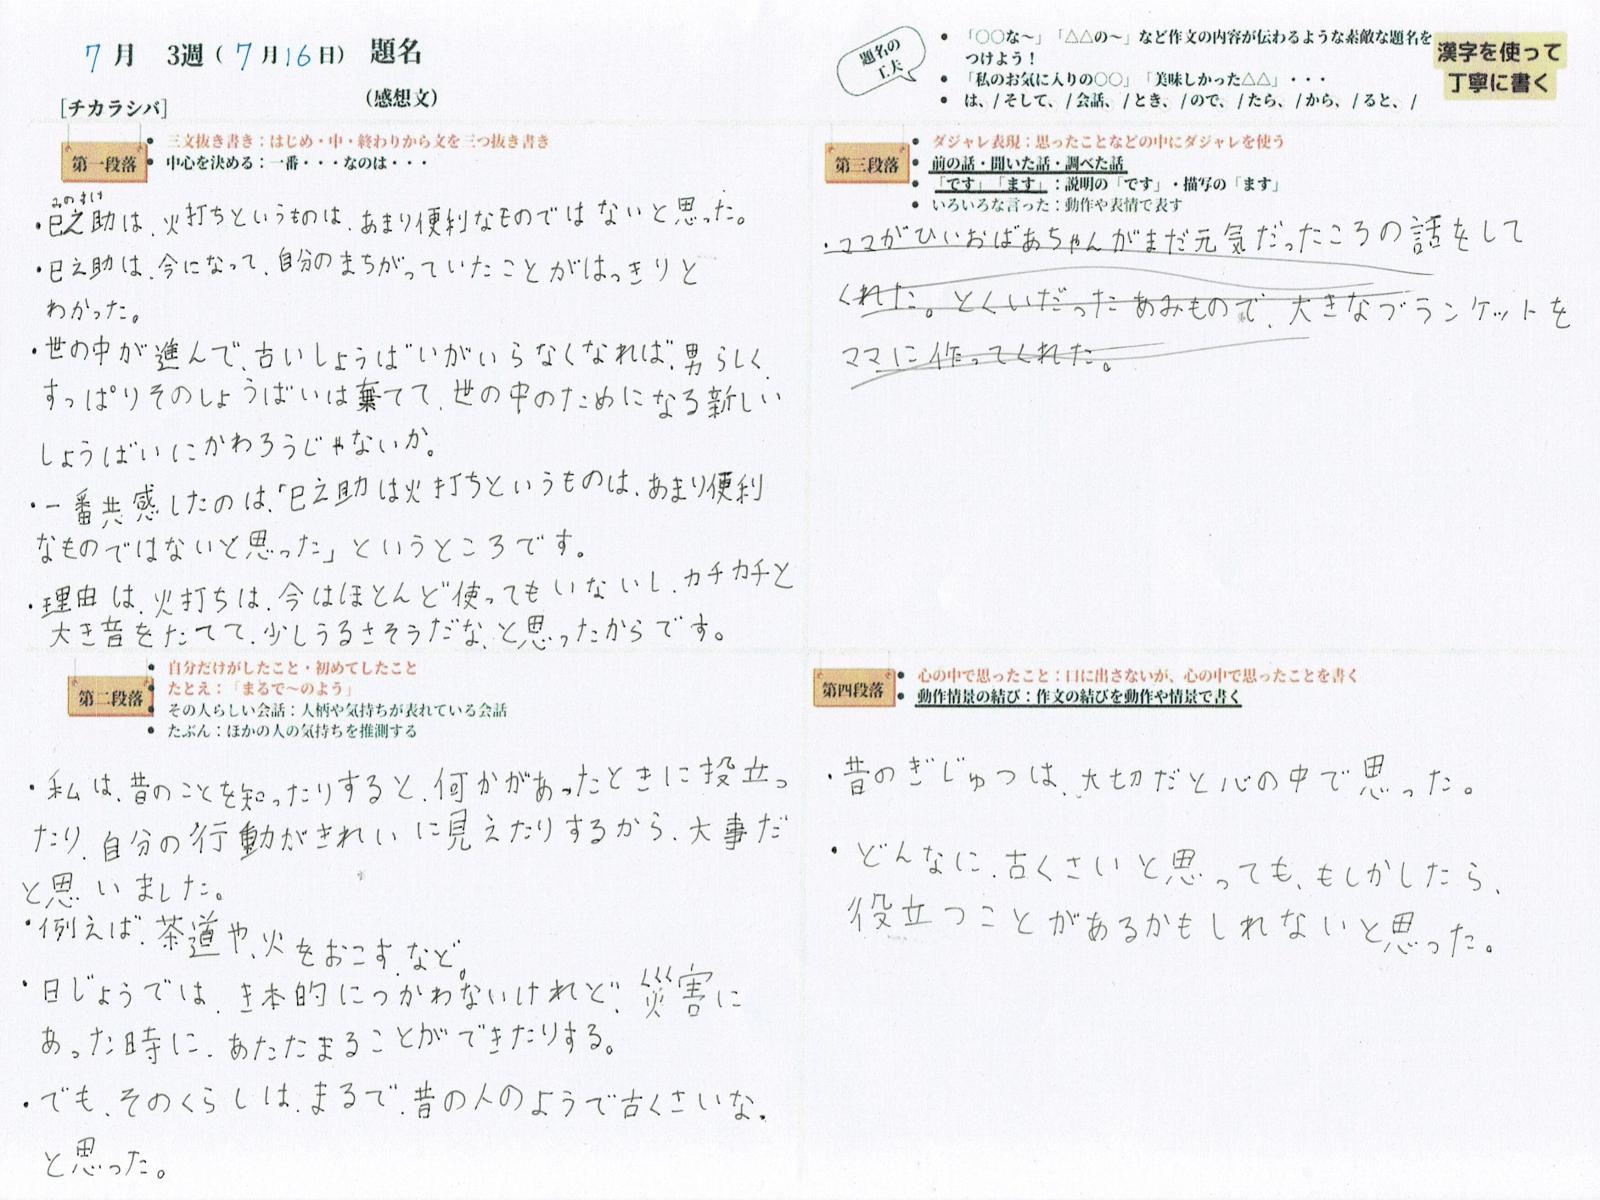 7月 3週（7月16日） 題名
（感想文）
［チカラシバ］
題名の
工夫
• 「○○な〜」「△△の〜」など作文の内容が伝わるような素敵な題名を
つけよう！
• 「私のお気に入りの○○」「美味しかった△△」・・・
• は、/ そして、/ 会話、/ とき、/ ので、/ たら、/ から、/ ると、/
漢字を使って
丁寧に書く
第一段落
• 三文抜き書き：はじめ・中・終わりから文を三つ抜き書き
• 中心を決める：一番・・・なのは・・・
みのすけ
・巳之助は、火打ちというものは、あまり便利なものではないと思った。
・巳之助は、今になって、自分のまちがっていたことがはっきりと
わかった。
・世の中が進んで、古いしょうばいがいらなくなれば、男らしく、
すっぱりそのしょうばいは棄てて、世の中のためになる新しい
しょうばいにかわろうじゃないか。
・一番共感したのは、「巳之助は火打ちというものは、あまり便利
なものではないと思った」というところです。
・理由は、火打ちは、今はほとんど使ってもいないし、カチカチと
大き音をたてて、少しうるさそうだな、と思ったからです。
第二段落
• 自分だけがしたこと・初めてしたこと
• たとえ：「まるで〜のよう」
• その人らしい会話：人柄や気持ちが表れている会話
• たぶん：ほかの人の気持ちを推測する
・私は、昔のことを知ったりすると、何かがあったときに役立っ
たり、自分の行動がきれいに見えたりするから、大事だ
と思いました。
・例えば、茶道や、火をおこす、など。
・日じょうでは、き本的につかわないけれど、災害に
あった時に、あたたまることができたりする。
・でも、そのくらしは、まるで、昔の人のようで古くさいな、
と思った。
第三段落
• ダジャレ表現：思ったことなどの中にダジャレを使う
• 前の話・聞いた話・調べた話
• 「です」「ます」：説明の「です」・描写の「ます」
• いろいろな言った：動作や表情で表す
・ママがひいおばあちゃんがまだ元気だったころの話をして
くれた。とくいだったあみもので、大きなブランケットを
ママに作ってくれた。
第四段落
• 心の中で思ったこと：口に出さないが、心の中で思ったことを書く
• 動作情景の結び：作文の結びを動作や情景で書く
・昔のぎじゅつは、大切だと心の中で思った。
・どんなに、古くさいと思っても、もしかしたら、
役立つことがあるかもしれないと思った。